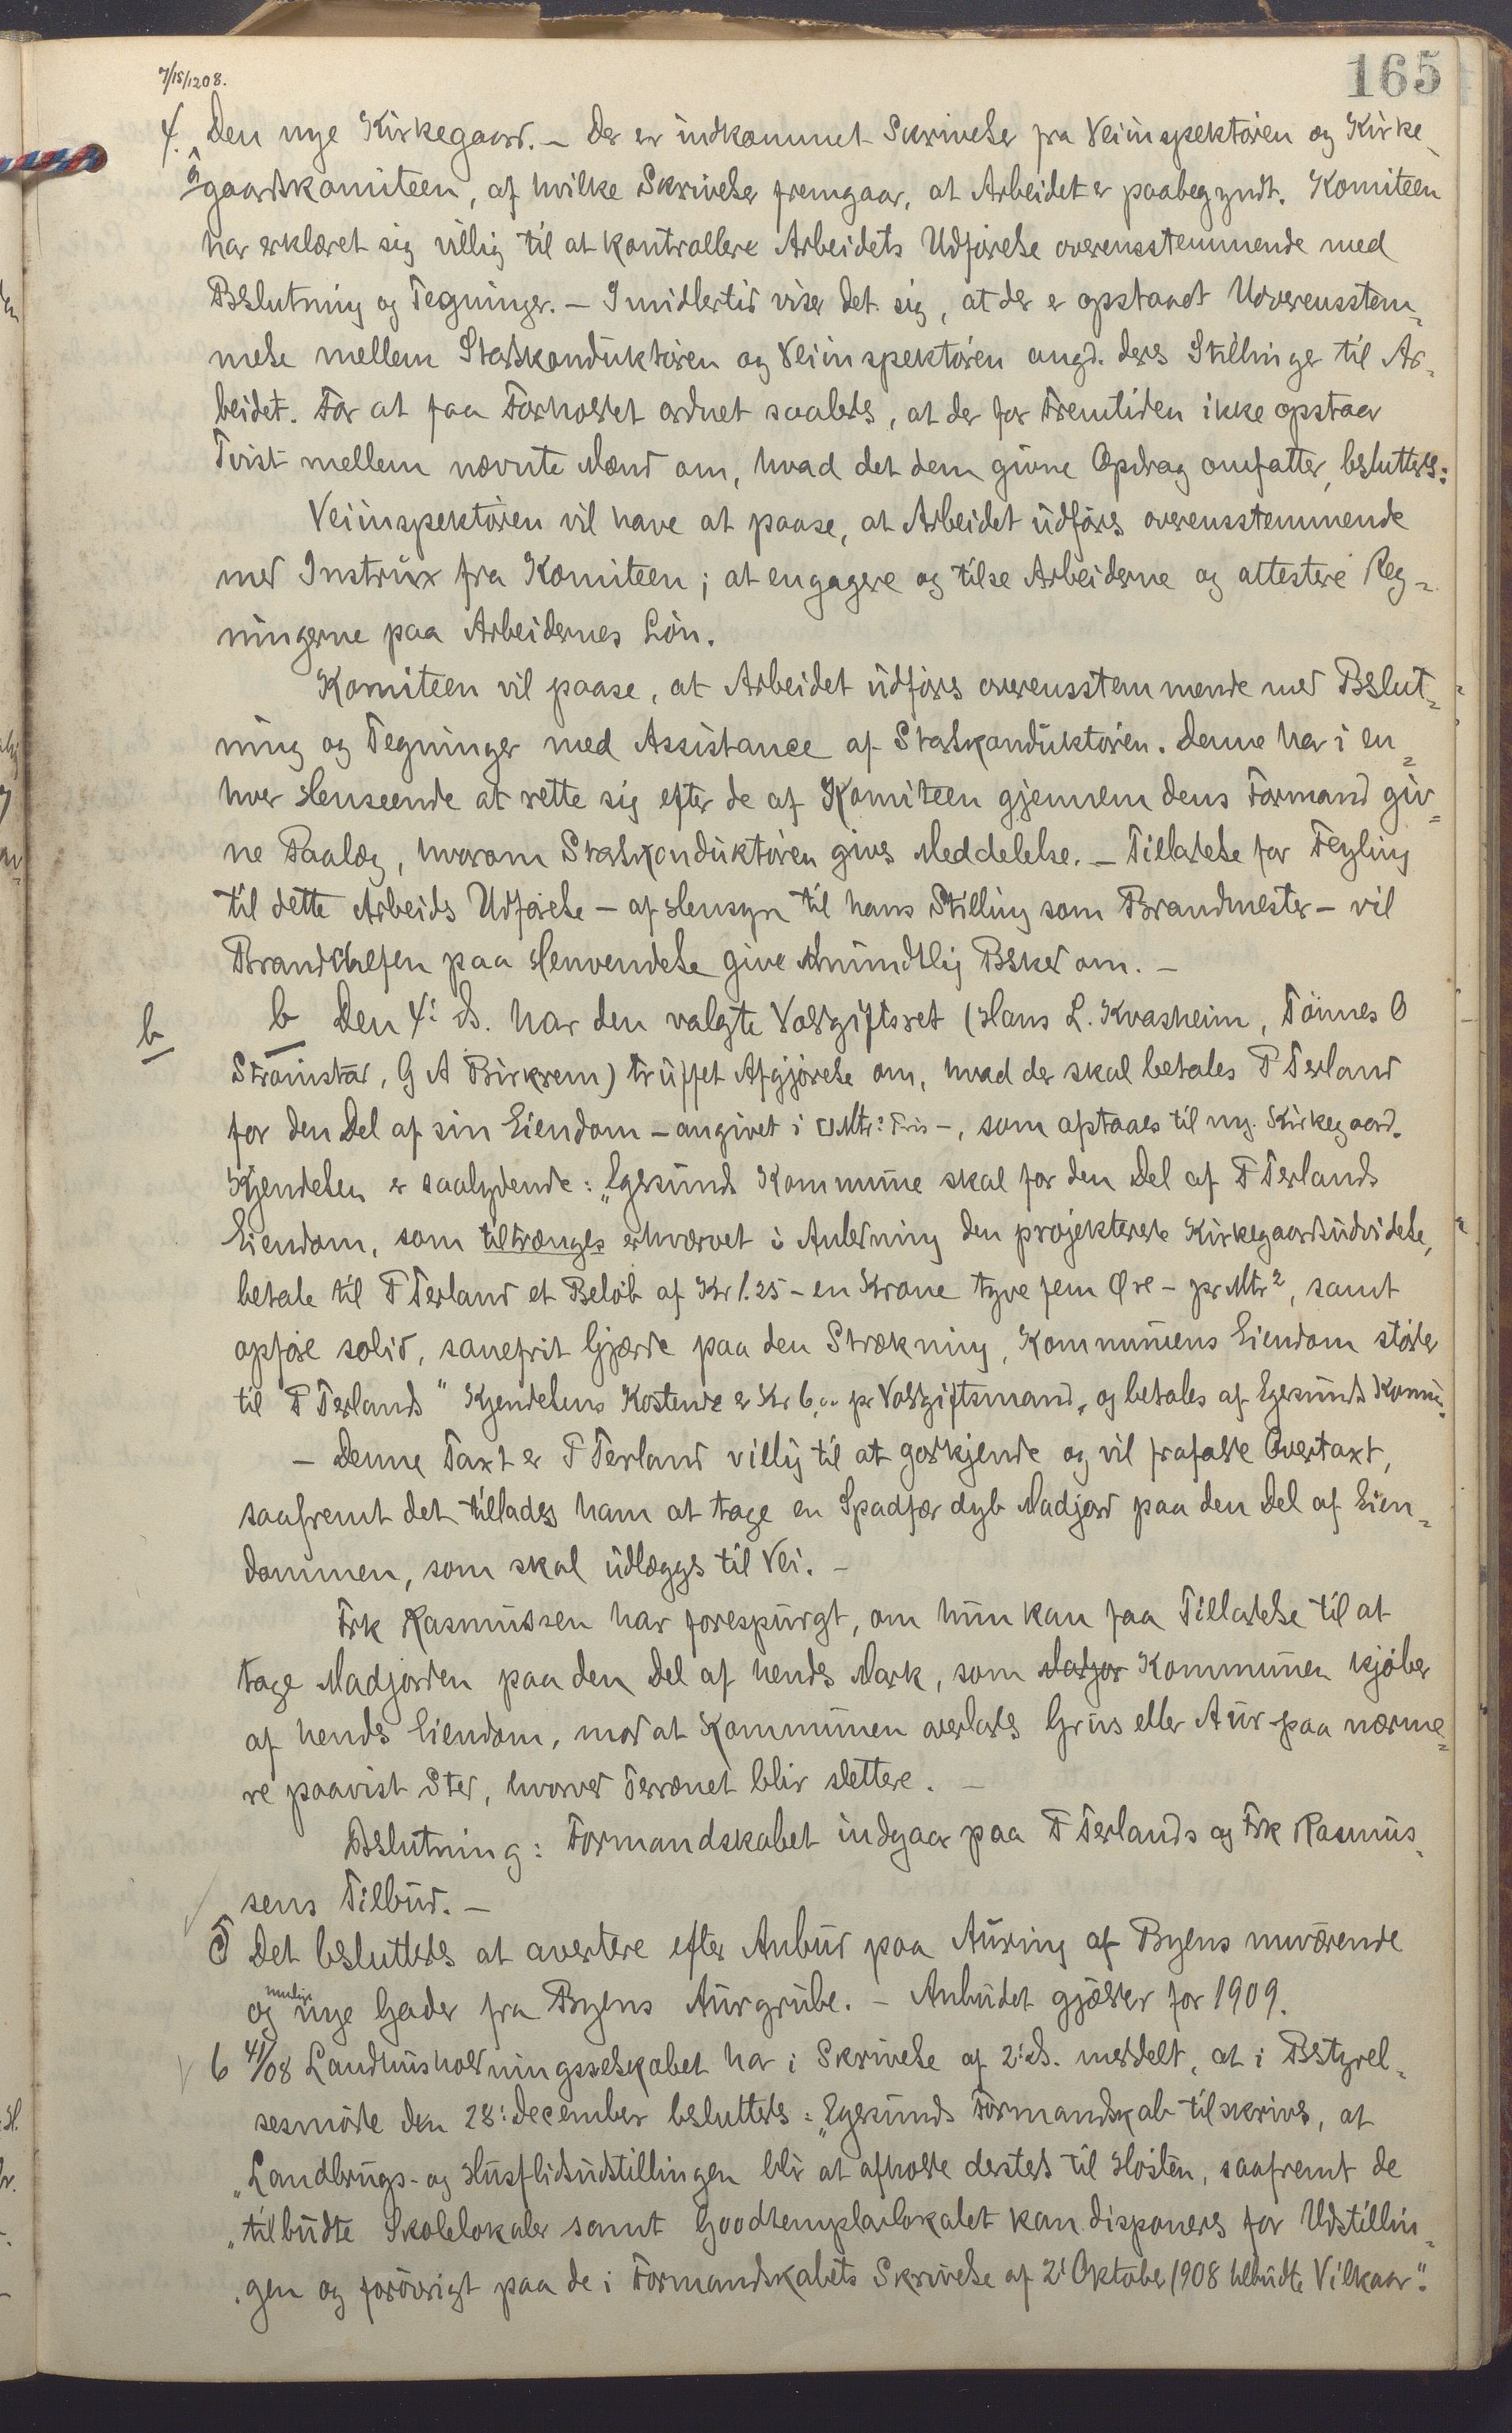 165
7/15/1208.
4. Den nye Kirkegaard. – Der er indkommet Skrivelser fra Veiinspektøren og Kirke-
a gaardskomiteen, af hvilke Skrivelser fremgaar, at Arbeidet er paabegyndt. Komiteen
har erklæret sig villig til at kontrollere Arbeidets Udførelse overensstemmende med
Beslutning og Tegninger. – Imidlertid viser det sig, at der er opstaaet Uoverensstem-
melse mellem Stadskonduktøren og Veiinspektøren angd. deres Stillinger til Ar-
beidet. For at faa Forholdet ordnet saaledes, at der for Fremtiden ikke opstaar
Tvist mellem nævnte Mænd om, hvad det dem givne Opdrag omfatter, besluttes:
Veiinspektøren vil have at paase, at Arbeidet udføres overensstemmende
med Instrux fra Komiteen; at engagere og tilse Arbeiderne og attestere Reg-
ningerne paa Arbeidernes Løn.
Komiteen vil paase, at Arbeidet udføres overensstemmende med Beslut-
ning og Tegninger med Assistance af Stadskonduktøren. Denne har i en-
hver Henseende at rette sig efter de af Komiteen gjennem dens Formand giv-
ne Paalæg, hvorom Stadskonduktøren gives Meddelelse. – Tilladelse for Feyling
til dette Arbeids Udførelse – af Hensyn til hans Stilling som Brandmester – vil
Brandchefen paa Henvendelse give mundtlig Besked om. –
b b Den 4: ds. har den valgte Voldgiftsret (Hans L. Kvasheim, Tønnes O
Strømstad, G A Birkrem) truffet Afgjørelse om, hvad der skal betales T Terland
for den Del af sin Eiendom – angivet i □Mtr: Pris –, som afstaaes til ny Kirkegaard.
Kjendelsen er saalydende: „Egersunds Kommune skal for den Del af T Terlands
Eiendom, som tiltrænges erhvervet i Anledning den projekterede Kirkegaardsudvidelse,
betale til T Terland et Beløb af Kr 1.25 – en Krone tyve fem Øre – pr Mtr², samt
opføre solid, sauefrit Gjærde paa den Strækning, Kommunens Eiendom støder
til T Terlands" Kjendelsens Kostende er Kr 6,00 pr Voldgiftsmand, og betales af Egersunds Komm.
– Denne Taxt er T Terland villig til at godkjende og vil frafalde Overtaxt,
saafremt det tillades ham at tage en Spadfær dyb Madjord paa den Del af Eien-
dommen, som skal udlægges til Vei. –
Frk Rasmussen har forespurgt, om hun kan faa Tilladelse til at
tage Madjorden paa den Del af hendes Mark, som Madjor Kommunen kjøber
af hendes Eiendom, mod at Kommunen overlades Grus eller Aur paa nærme-
re paavist Sted, hvorved Terrænet blir slettere. –
Beslutning: Formandskabet indgaar paa T Terlands og Frk Rasmus-
sens Tilbud. –
5 Det besluttedes at avertere efter Anbud paa Auring af Byens nuværende
og mulige nye Gader fra Byens Aurgrube. – Anbudet gjælder for 1909.
6 41/08 Landhusholdningsselskabet har i Skrivelse af 2: ds. meddelt, at i Bestyrel-
sesmøde den 28: december besluttedes: „Egersunds Formandskab tilskrives, at
„Landbrugs- og Husflidsudstillingen blir at afholde dersteds til Høsten, saafremt de
„tilbudte Skolelokaler samt Goodtemplarlokalet kan disponeres for Udstillin-
„gen og forøvrigt paa de i Formandskabets Skrivelse af 2: Oktober 1908 tilbudte Vilkaar".